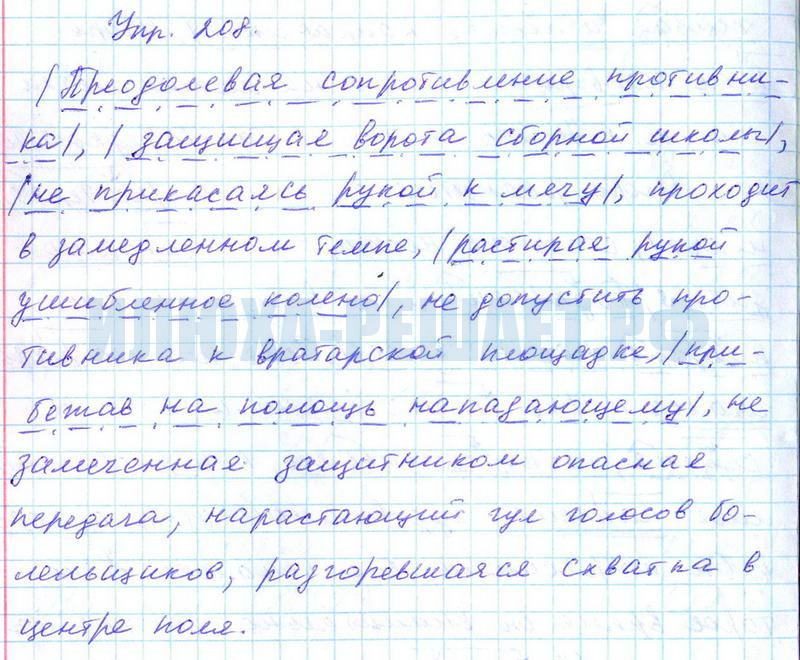 Упр. 208.
|Преодолевая сопротивление противни-
ка|, |защищая ворота сборной школы|,
|не прикасаясь рукой к мячу|, проходит
в замедленном темпе, |растирая рукой
ушибленное колено|, не допустить про-
тивника к вратарской площадке, |при-
бежав на помощь нападающему|, не
замеченная защитником опасная
передача, нарастающий гул голосов бо-
лельщиков, разгоревшаяся схватка в
центре поля.
ИПОХА-РЕШАЕТ.РФ